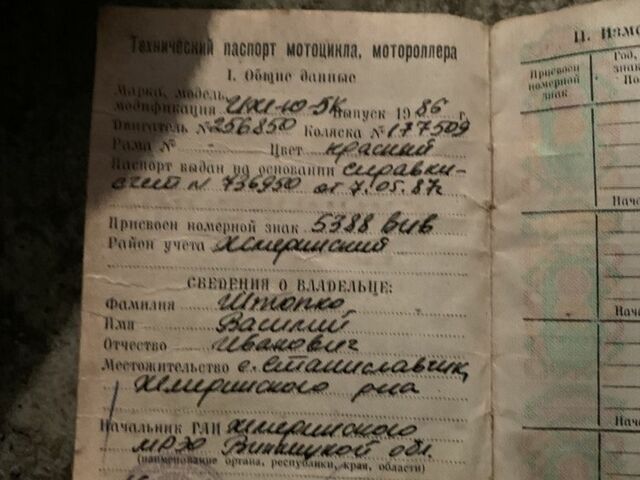 Технический паспорт мотоцикла, мотороллера
I. Общие данные
Марка, модель,
модификация ИЖ-Ю-5К Выпуск 1986 г.
Двигатель № 256850 Коляска № 177509
Рама № - Цвет красный
Паспорт выдан на основании справки-
счет N 736950 от 7.05.87г
Присвоен номерной знак 5388 ВИВ
Район учета Жмеринский
СВЕДЕНИЯ О ВЛАДЕЛЬЦЕ:
Фамилия Штопко
Имя Василий
Отчество Иванович
Местожительство с. Станиславчик,
Жмеринского р-на
Начальник ГАИ Жмеринского
МРЭО Винницкой обл.
(наименование органа, республики, края, области)
II. ИЗМО
Присвоен
номерной
знак
Год,
знак
По
Нача
Нача
Нач